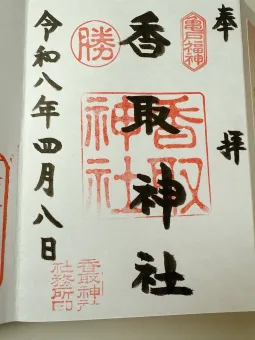 奉拝
亀戸福神
香取神社
香取神社
勝
令和八年四月八日
香取神社
社務所印